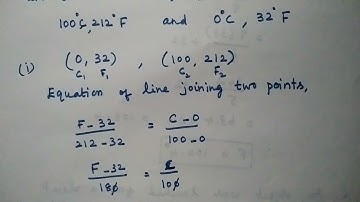 100°C, 212°F and 0°C, 32°F
(i) (0, 32) , (100, 212)
C₁ F₁ C₂ F₂
Equation of line joining two points,
F - 32 / 212 - 32 = C - 0 / 100 - 0
F - 32 / 180 = C / 100